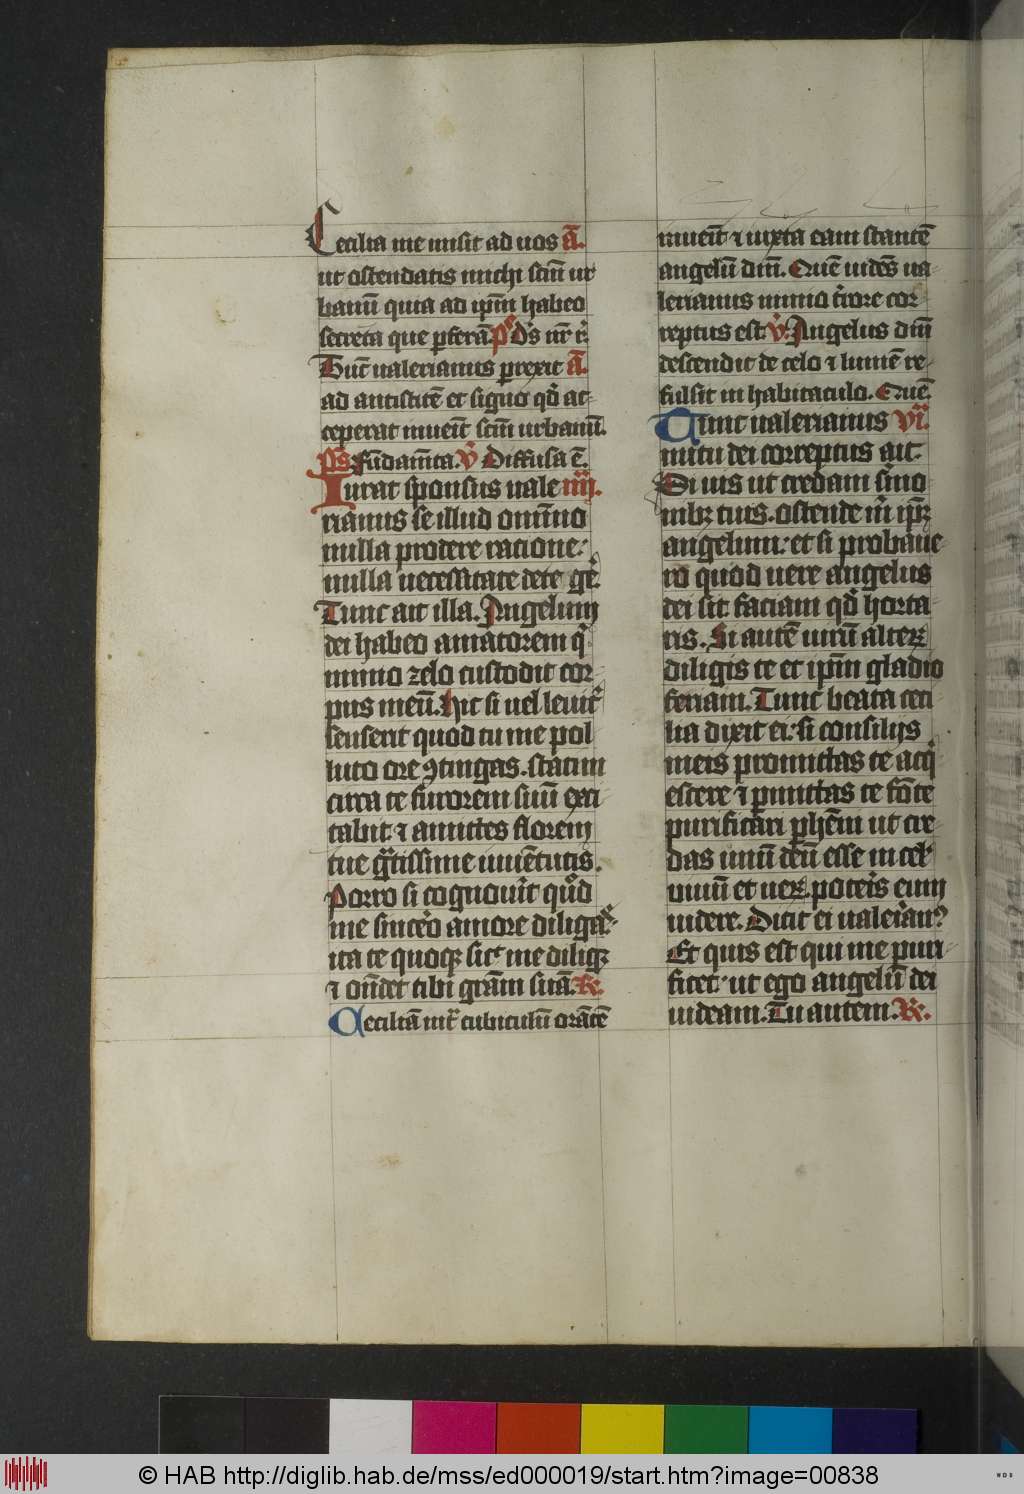 Cecilia me misit ad uos a͞.
ut ostendatis michi sc͞m ur
banu͞ quia ad ip͞m habeo
secreta que p̲fera͞. p͛s D͞s nr͞ r͛.
Hu͞c ualerianus p̲rexit a͞.
ad antistite͞ et signo qd̛ ac-
ceperat inueit͞ sc͞m urbanu͞.
p͛s. fu͞dam͞ta. v̛ Diffusa e͞.
Iurat sponsus uale iiij.
rianus se illud om͞ino
nulla prodere racione:
nulla necessitate dete ge͛.
Tunc ait illa. Angelum
dei habeo amatorem q̛
nimio zelo custodit cor-
pus meu͞. Hic si uel leuit͛
senserit quod tu me pol-
luto ore ꝯtingas. statim
circa te furorem suu͞ exci-
tabit ⁊ amittes florem
tue gr͞atissime iuue͞tutis.
Porro si cognou͛it quod
me sincero amore diliga͛s.
ita te quoqꝫ sic͛ me diliget
⁊ on͞det tibi gra͞m sua͞. R͛.
Cecilia͞ int͛ cubiculu͞ ora͞te͞
inueit͞ ⁊ iuxta eam stante͞
angelu͞ dn͞i. Que͞ uide͞s ua-
lerianus nimio t͛rore cor-
reptus est. v̛. Angelus dn͞i
descendit de celo ⁊ lume͞ re-
fulsit in habitaculo. Que͞.
Tunc ualerianus vi͛.
nutu dei correptus ait.
Si uis ut credam s͛mo-
nibꝫ tuis. ostende m̛ ip͞ꝫ
angelum: et si probaue-
ro quod uere angelus
dei sit faciam qd̛ horta-
ris. Si aute͞ uiru͞ alterꝫ
diligis te et ip͞m gladio
feriam. Tunc beata ceci-
lia dixit ei: si consilijs
meis promittas te acq̛
escere ⁊ p̲mittas te fo͞te
purificari p̲he͞ni ut cre-
das unu͞ deu͞ esse in cel͛
uiuu͞ et ueꝝ. poteris eum
uidere. Dicit ei ualerian9
Et quis est qui me puri-
ficet: ut ego angelu͞ dei
uideam. Tu autem. R͛.
© HAB http://diglib.hab.de/mss/ed000019/start.htm?image=00838